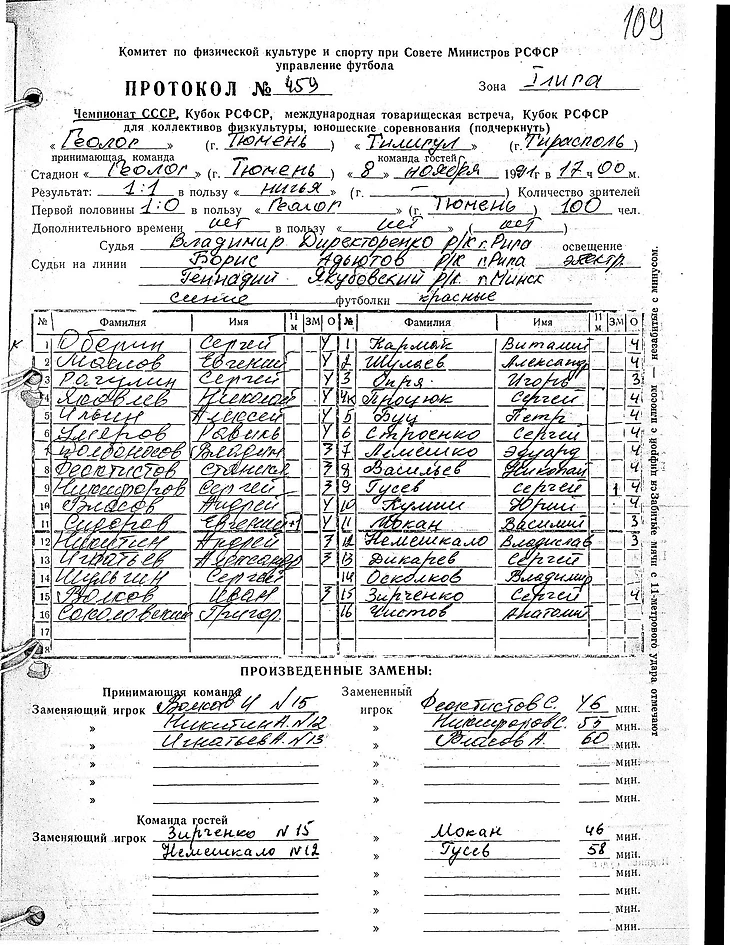 109
Комитет по физической культуре и спорту при Совете Министров РСФСР
управление футбола
ПРОТОКОЛ № 459 Зона I лига
Чемпионат СССР, Кубок РСФСР, международная товарищеская встреча, Кубок РСФСР
для коллективов физкультуры, юношеские соревнования (подчеркнуть)
« Геолог » (г. Тюмень ) « Тилигул » (г. Тирасполь )
принимающая команда команда гостей
Стадион « Геолог » (г. Тюмень ) « 8 » ноября 1991 г в 17 ч 00 м.
Результат: 1:1 в пользу « ничья » (г. — ) Количество зрителей
Первой половины 1:0 в пользу « Геолог » (г. Тюмень ) 100 чел.
Дополнительного времени нет в пользу « нет » ( нет )
Судья Владимир Директоренко р/к г. Рига освещение
Судьи на линии Борис Адьютов р/к г. Рига электр.
Геннадий Якубовский р/к г. Минск
синие футболки красные
№ Фамилия Имя 11 м ЗМ О № Фамилия Имя 11 м ЗМ О
1 Оберин Сергей 4 1 Кармык Виталий 4
2 Маслов Евгений 4 2 Шуляев Александр 4
3 Рагулин Сергей 4 3 Онря Игорь 3
4 Яковлев Николай 4 4к Процюк Сергей 4
5 Ильин Алексей 4 5 Буц Петр 4
6 Умяров Равиль 4 6 Строенко Сергей 4
7 Колбоносов Владим 3 7 Лемешко Эдуард 4
8 Феоктистов Станисл 3 8 Васильев Николай 4
9 Никифоров Сергей 3 9 Гусев Сергей 1 4
10 Власов Андрей 4 10 Кулиш Юрий 4
11 Сидоров Евгений +1 4 11 Мокан Василий 3
12 Никитин Андрей 3 12 Немешкало Владислав 3
13 Игнатьев Александр 3 13 Дикарев Сергей
14 Шульгин Сергей 14 Осколков Владимир
15 Волков Иван 3 15 Зирченко Сергей 4
16 Соколовский Григор 16 Чистов Анатолий
17
18
Забитые мячи с 11-метрового удара отмечают цифрой с плюсом — незабитые с минусом.
ПРОИЗВЕДЕННЫЕ ЗАМЕНЫ:
Принимающая команда Замененный
Заменяющий игрок Волков И N 15 игрок Феоктистов С. 46 мин.
» Никитин А. N12 » Никифоров С. 55 мин.
» Игнатьев А. N13 » Власов А. 60 мин.
» » мин.
» » мин.
Команда гостей
Заменяющий игрок Зирченко N 15 » Мокан 46 мин.
Немешкало N12 » Гусев 58 мин.
» мин.
» мин.
» мин.
» мин.